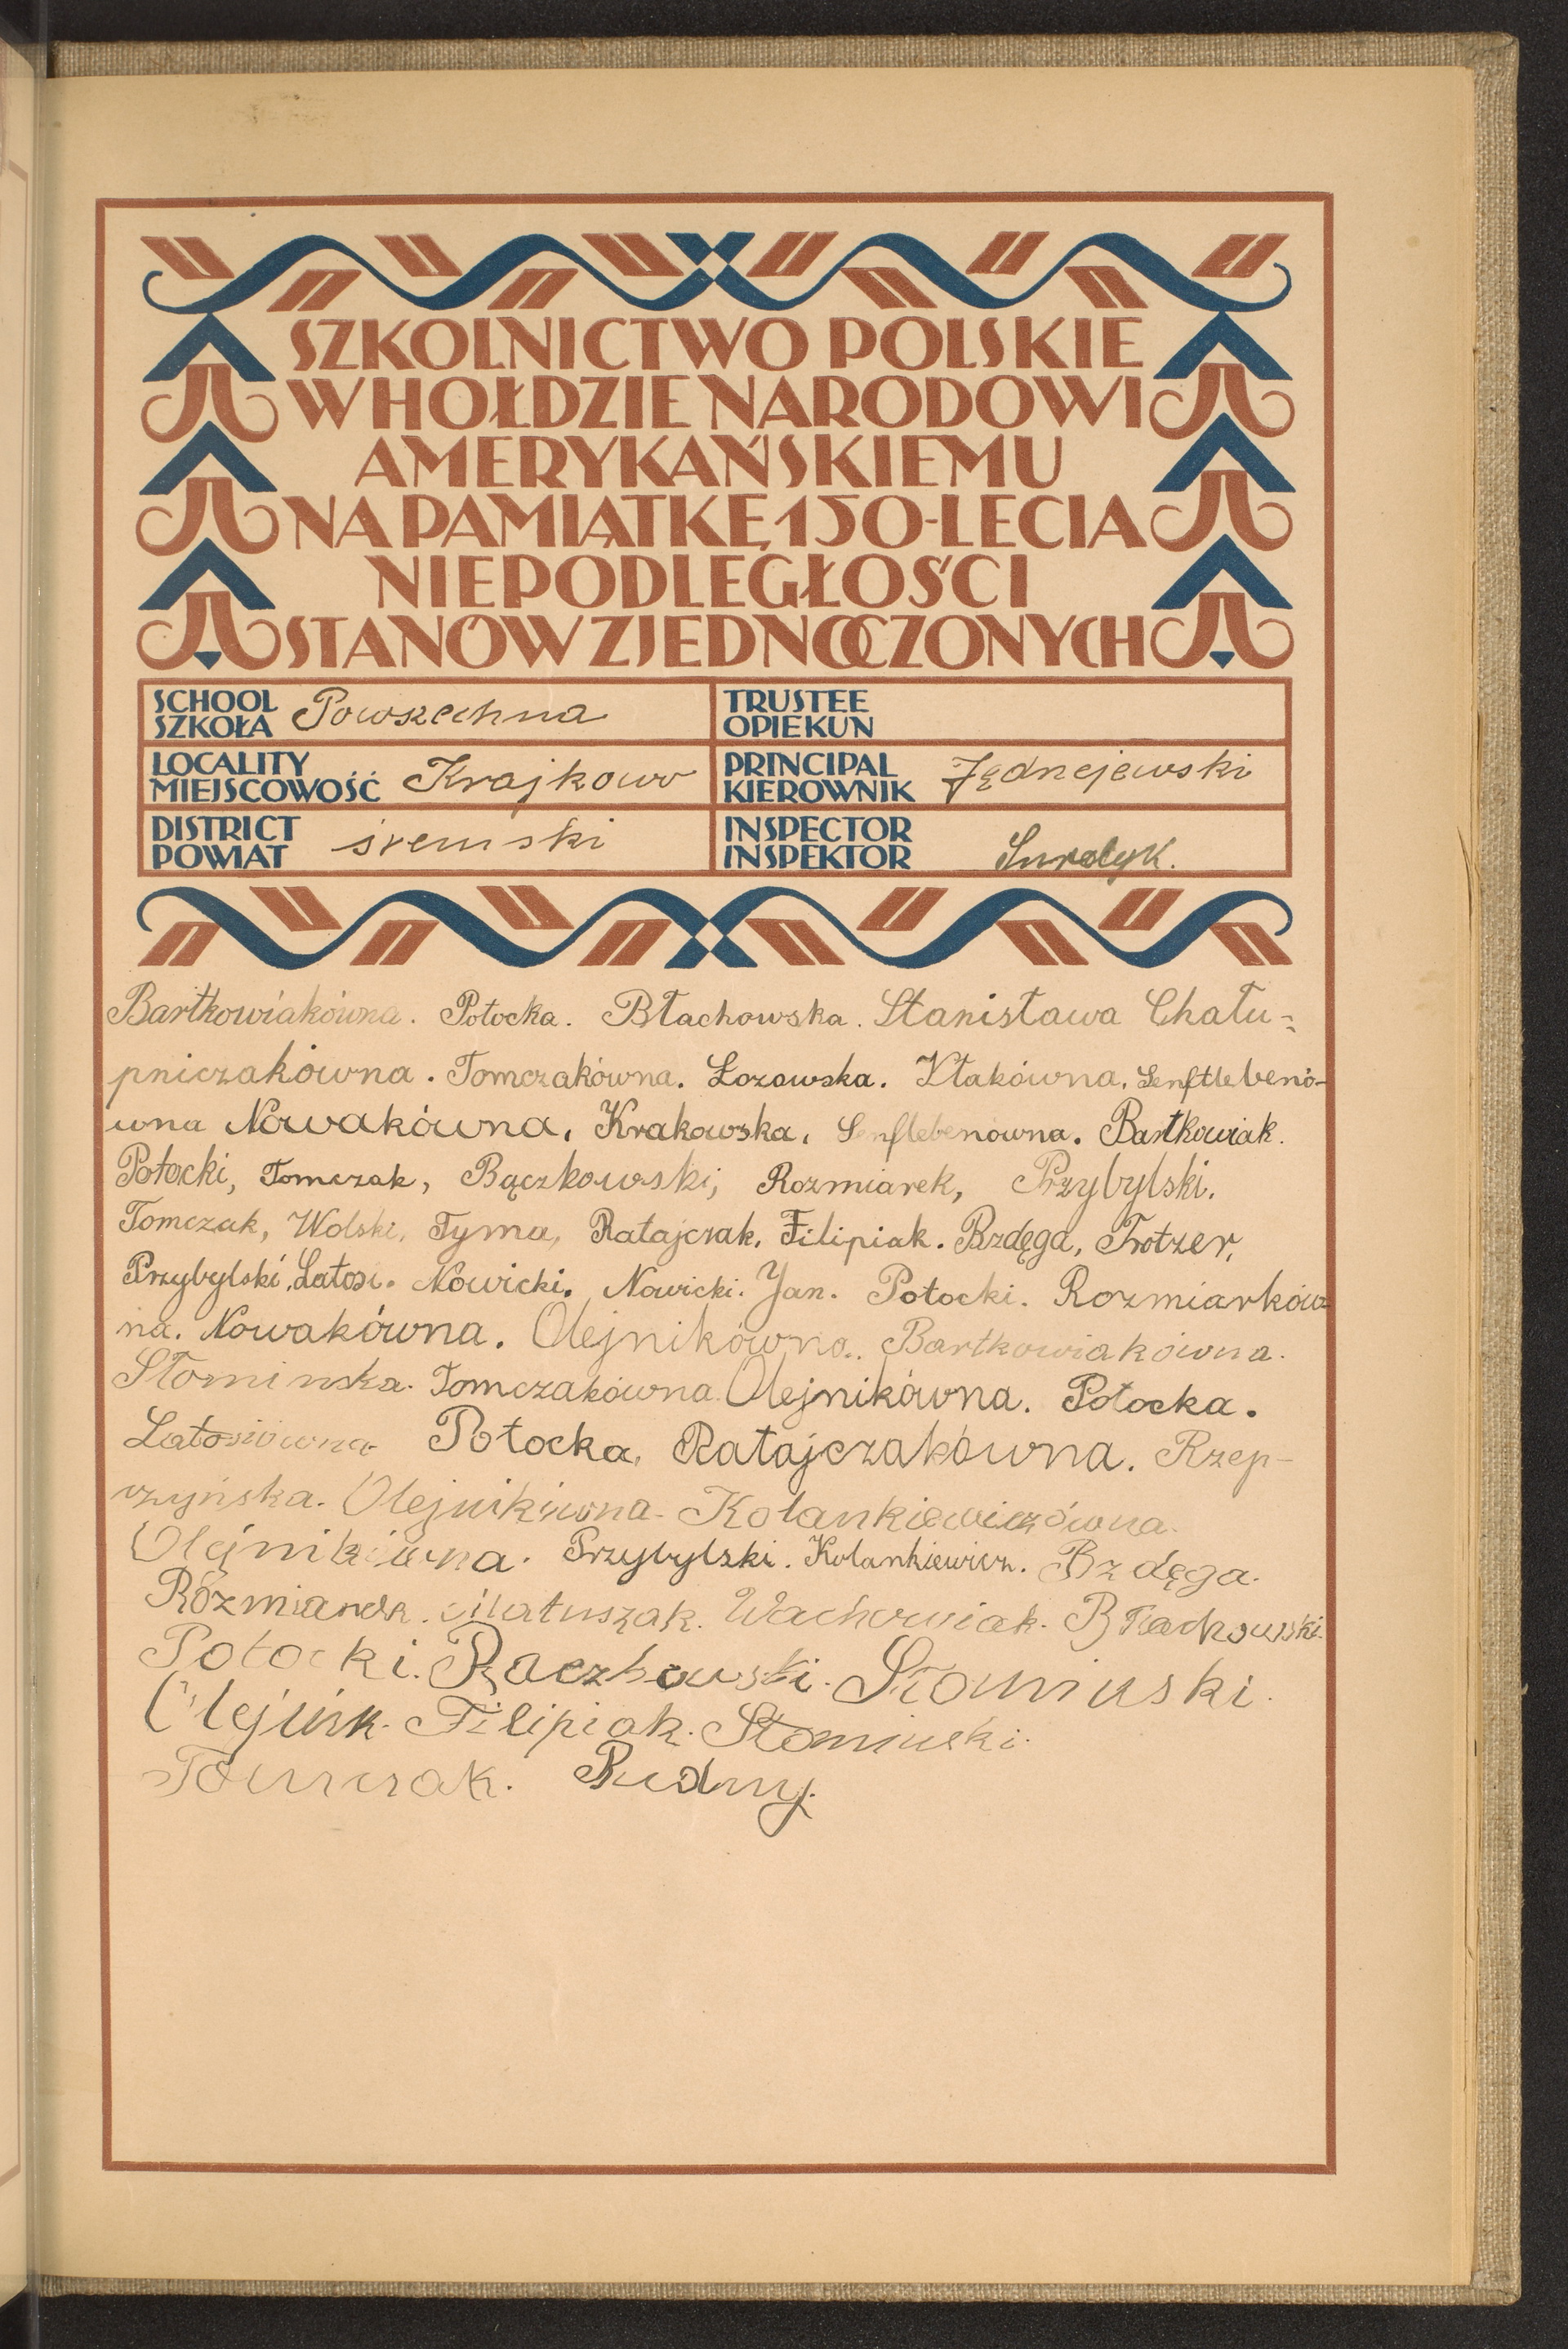 SZKOLNICTWO POLSKIE
W HOŁDZIE NARODOWI
AMERYKAŃSKIEMU
NA PAMIĄTKĘ 150-LECIA
NIEPODLEGŁOŚCI
STANÓW ZJEDNOCZONYCH
SCHOOL
SZKOŁA Powszechna
TRUSTEE
OPIEKUN
LOCALITY
MIEJSCOWOŚĆ Krajkowo
PRINCIPAL
KIEROWNIK Jędrzejewski
DISTRICT
POWIAT śremski
INSPECTOR
INSPEKTOR
Bartkowiakówna. Potocka. Błachowska. Stanisława Chału-
pniczakówna. Tomczakówna. Łozowska. Kłakówna. Senftlebenó-
wna Nowakówna, Krakowska, Senflebenowna. Bartkowiak.
Potocki, Tomczak, Bączkowski, Rozmiarek, Przybylski.
Tomczak, Wolski, Tyma, Ratajczak, Filipiak. Bzdęga, Trotzer,
Przybylski, Latosi. Nowicki. Nowicki. Jan. Potocki. Rozmiarków
na. Nowakówna. Olejnikówna. Bartkowiakówna.
Słominska. Tomczakówna Olejnikówna. Potocka.
Latosiowna Potocka, Ratajczakówna. Rzep-
czyńska. Olejnikówna. Kolankiewiczówna.
Olejnikówna. Przybylski. Kolankiewicz. Bzdęga.
Rozmiarek. Matuszak. Wachowiak. Błachowski.
Potocki. Baczkowski. Słominski.
Olejnik. Filipiak. Słominski.
Tomczak. Rudny.